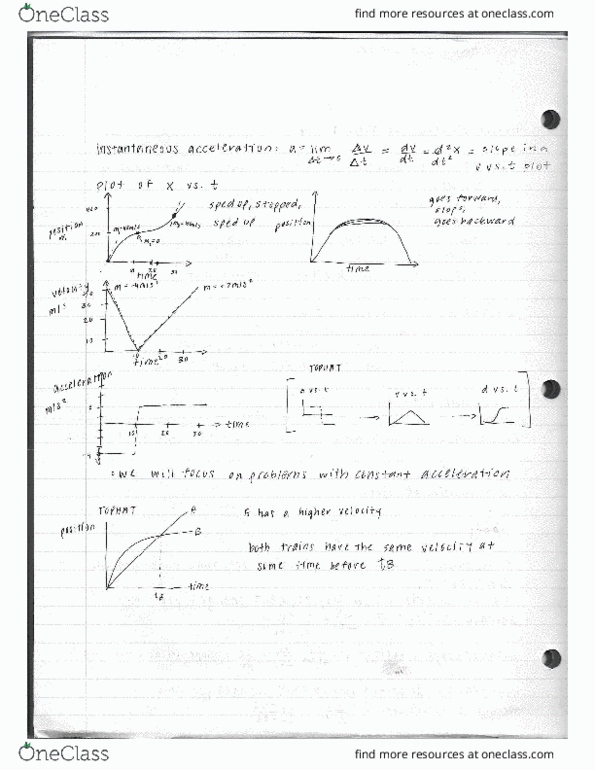 OneClass
find more resources at oneclass.com
Instantaneous acceleration: a = lim Δt→0 Δv/Δt = dv/dt = d²x/dt² = slope in a
v vs. t plot
Plot of x vs. t
sped up, stopped,
sped up
position
m
time
position
time
goes forward,
stops,
goes backward
velocity
m/s
20
m = -4m/s²
m = +2m/s²
10
20
30
time
acceleration
m/s²
time
TOPHAT
a vs. t
v vs. t
d vs. t
we will focus on problems with constant acceleration
TOPHAT
position
A
B
has a higher velocity
both trains have the same velocity at
some time before
time
OneClass
find more resources at oneclass.com